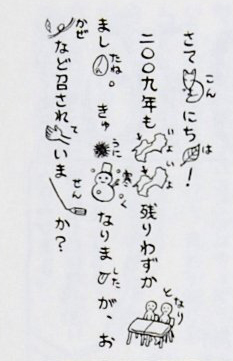 さてこんにちは！
二〇〇九年もいよいよ残りわずかとなり
ましたね。きゅうに寒くなりましたが、お
かぜなど召されていませんか？